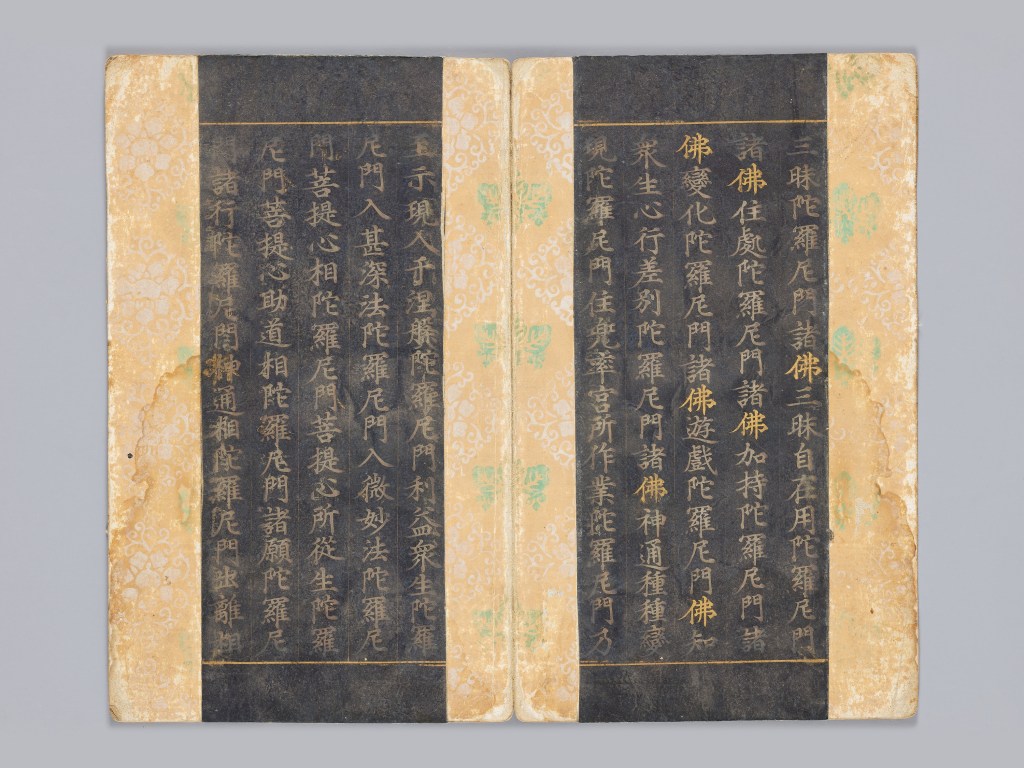 三昧陀羅尼門諸佛三昧自在用陀羅尼門
諸佛住處陀羅尼門諸佛加持陀羅尼門諸
佛變化陀羅尼門諸佛遊戲陀羅尼門佛知
眾生心行差別陀羅尼門諸佛神通種種變
現陀羅尼門住兜率宮所作業陀羅尼門乃
至示現入于涅槃陀羅尼門利益眾生陀羅
尼門入甚深法陀羅尼門入微妙法陀羅尼
門菩提心相陀羅尼門菩提心所從生陀羅
尼門菩提心助道相陀羅尼門諸願陀羅尼
門諸行陀羅尼門神通相陀羅尼門出離相